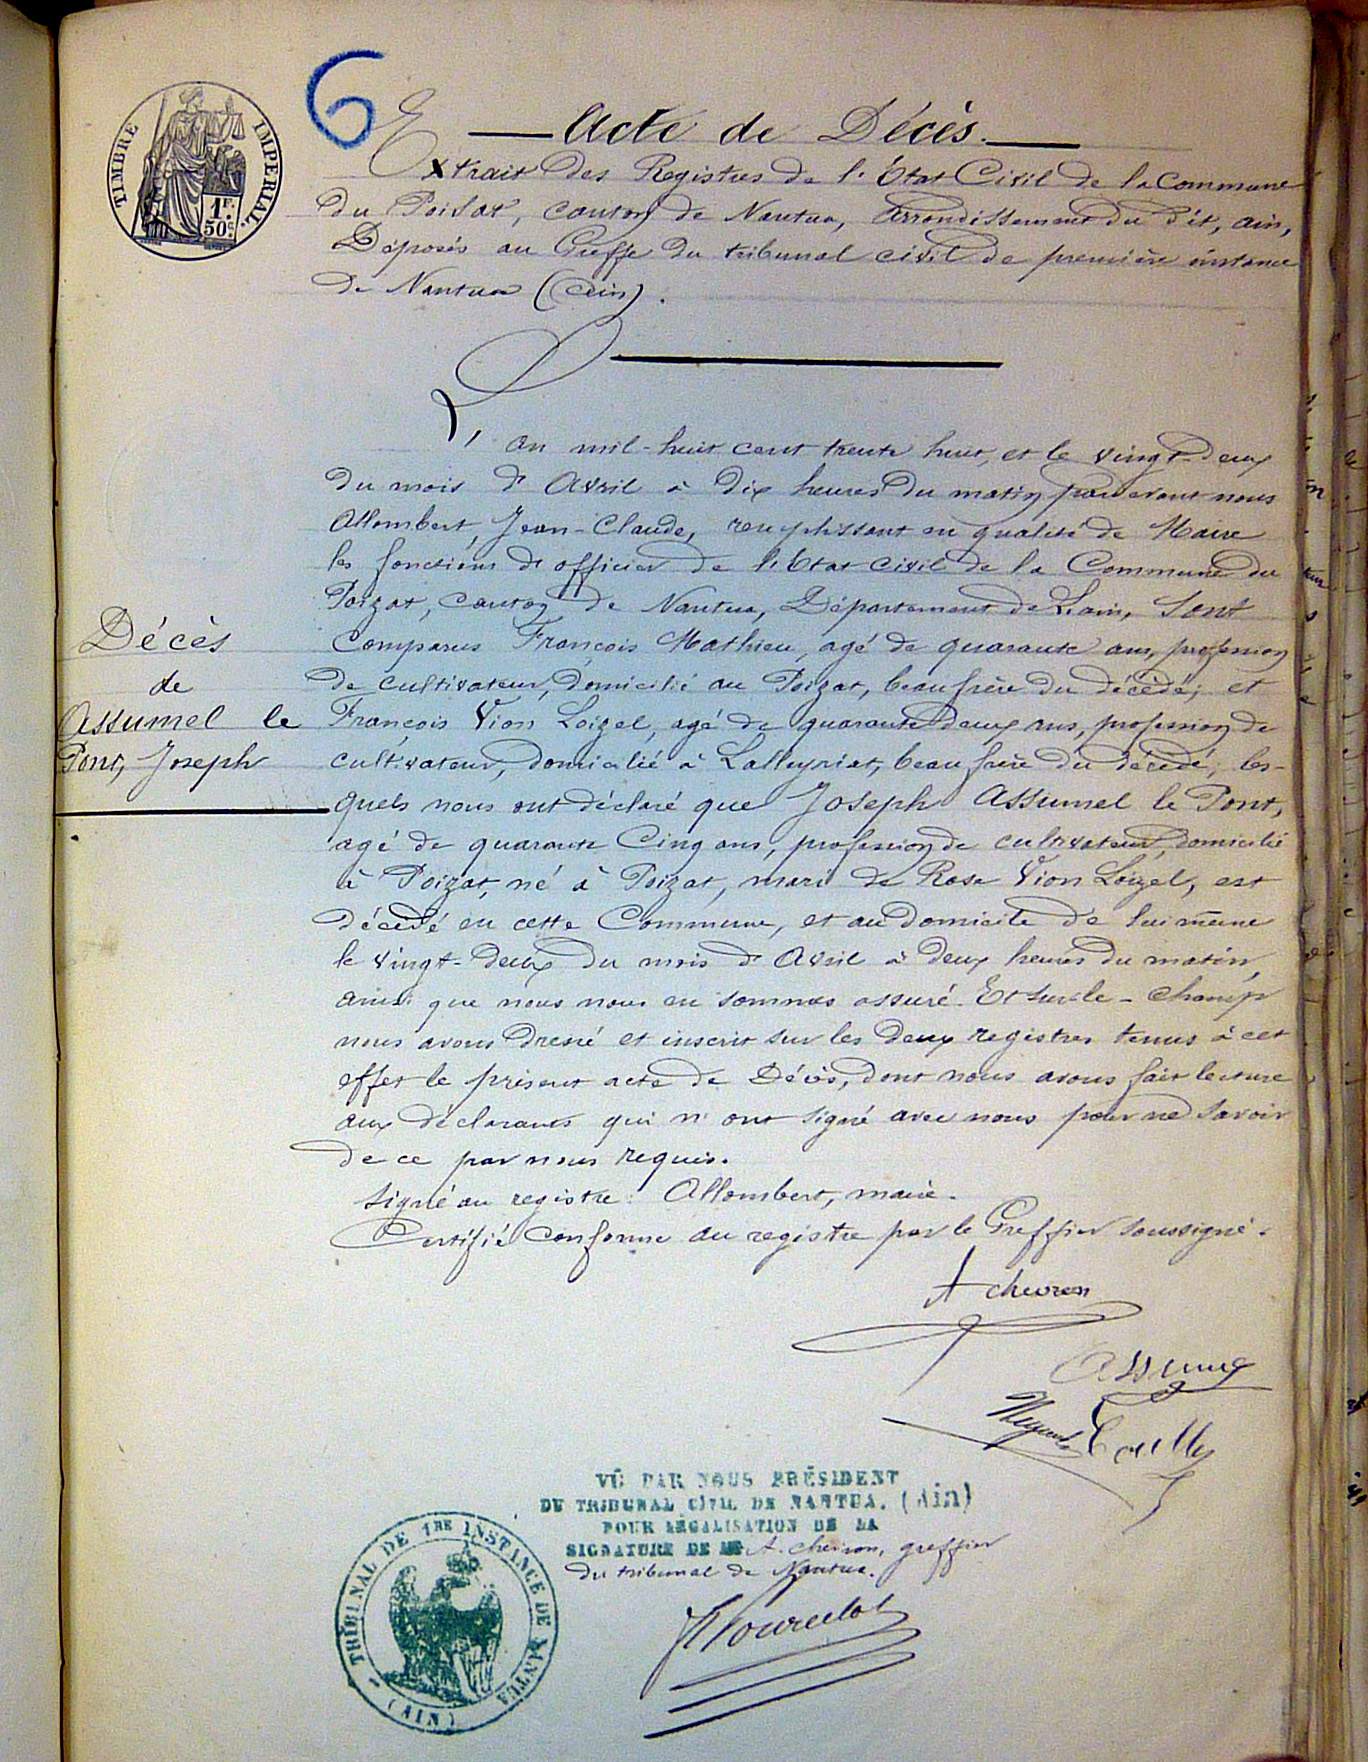 TIMBRE IMPÉRIAL.
1F.
50c.
6
Acte de Décès.
Extrait des Registres de l'État Civil de la Commune
du Poisat, canton de Nantua, Arrondissement du dit, ain,
Déposés au Greffe du tribunal civil de première instance
de Nantua (Ain).
L'an mil-huit cent trente huit, et le vingt-deux
du mois d'Avril à dix heures du matin pardevant nous
Allombert, Jean-Claude, remplissant en qualité de Maire
les fonctions d'officier de l'Etat civil de la Commune du
Poizat, canton de Nantua, Département de L'ain, sont
comparus François Mathieu, agé de quarante ans, profession
de cultivateur, domicilié au Poizat, beau frère du décédé; et
François Vion Loizel, agé de quarante deux ans, profession de
cultivateur, domicilié à Lalleyriat, beau frère du décédé; les-
quels nous ont déclaré que Joseph Assumel le Pont,
agé de quarante Cinq ans, profession de cultivateur, domicilié
à Poizat, né à Poizat, mari de Rose Vion Loizel, est
décédé en cette Commune, et au domicile de lui même
le vingt-deux du mois d'Avril à deux heures du matin,
ainsi que nous nous en sommes assuré. Et sur le-champ
nous avons dressé et inscrit sur les deux registres tenus à cet
effet le présent acte de Décès, dont nous avons fait lecture
aux déclarants qui n'ont signé avec nous pour ne savoir
de ce par nous requis.
Signé au registre: Allombert, maire.
Certifié Conforme au registre par le Greffier soussigné.
Décès
de
Assumel le
Pont, Joseph
A chevron
VÛ PAR NOUS PRÉSIDENT
DU TRIBUNAL CIVIL DE NANTUA. (Ain)
POUR LÉGALISATION DE LA
SIGNATURE DE Mr A. chevron, greffier
du tribunal de Nantua.
TRIBUNAL DE 1RE INSTANCE DE NANTUA
(AIN)